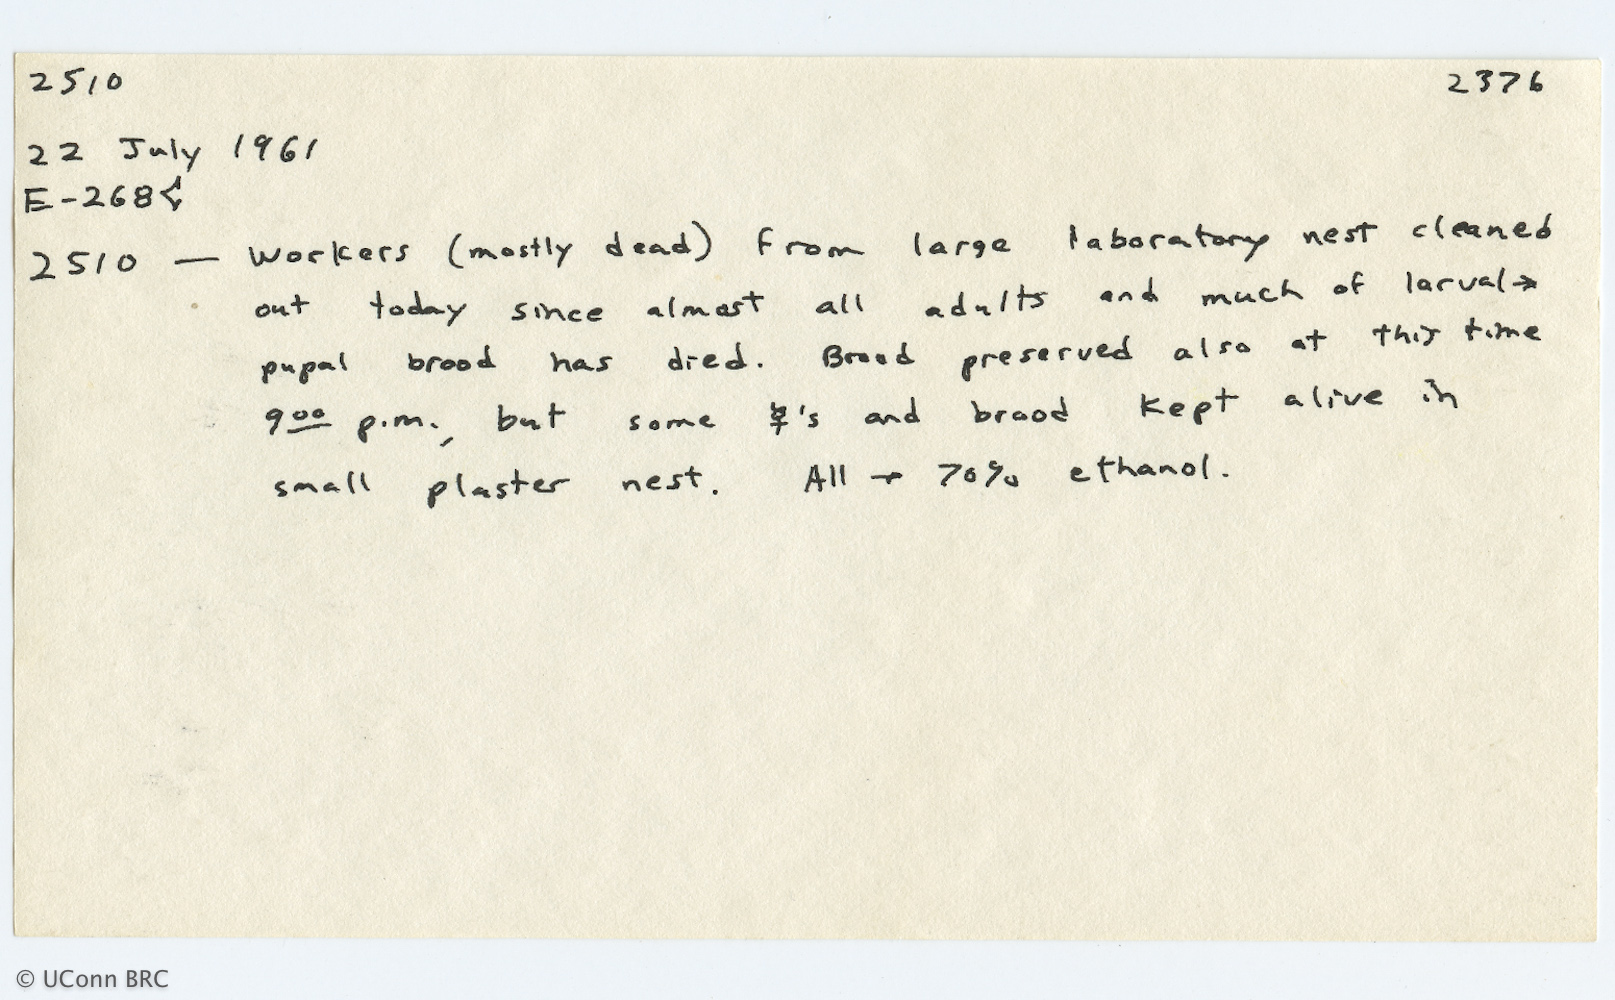 2510 2376
22 July 1961
E-268
2510 — Workers (mostly dead) from large laboratory nest cleaned
out today since almost all adults and much of larval→
pupal brood has died. Brood preserved also at this time
9⁰⁰ p.m., but some ☿'s and brood kept alive in
small plaster nest. All → 70% ethanol.
© UConn BRC